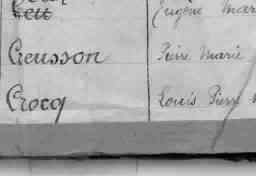 Eugène Mar
Creusson Pierre Marie
Crocq Louis Pierre